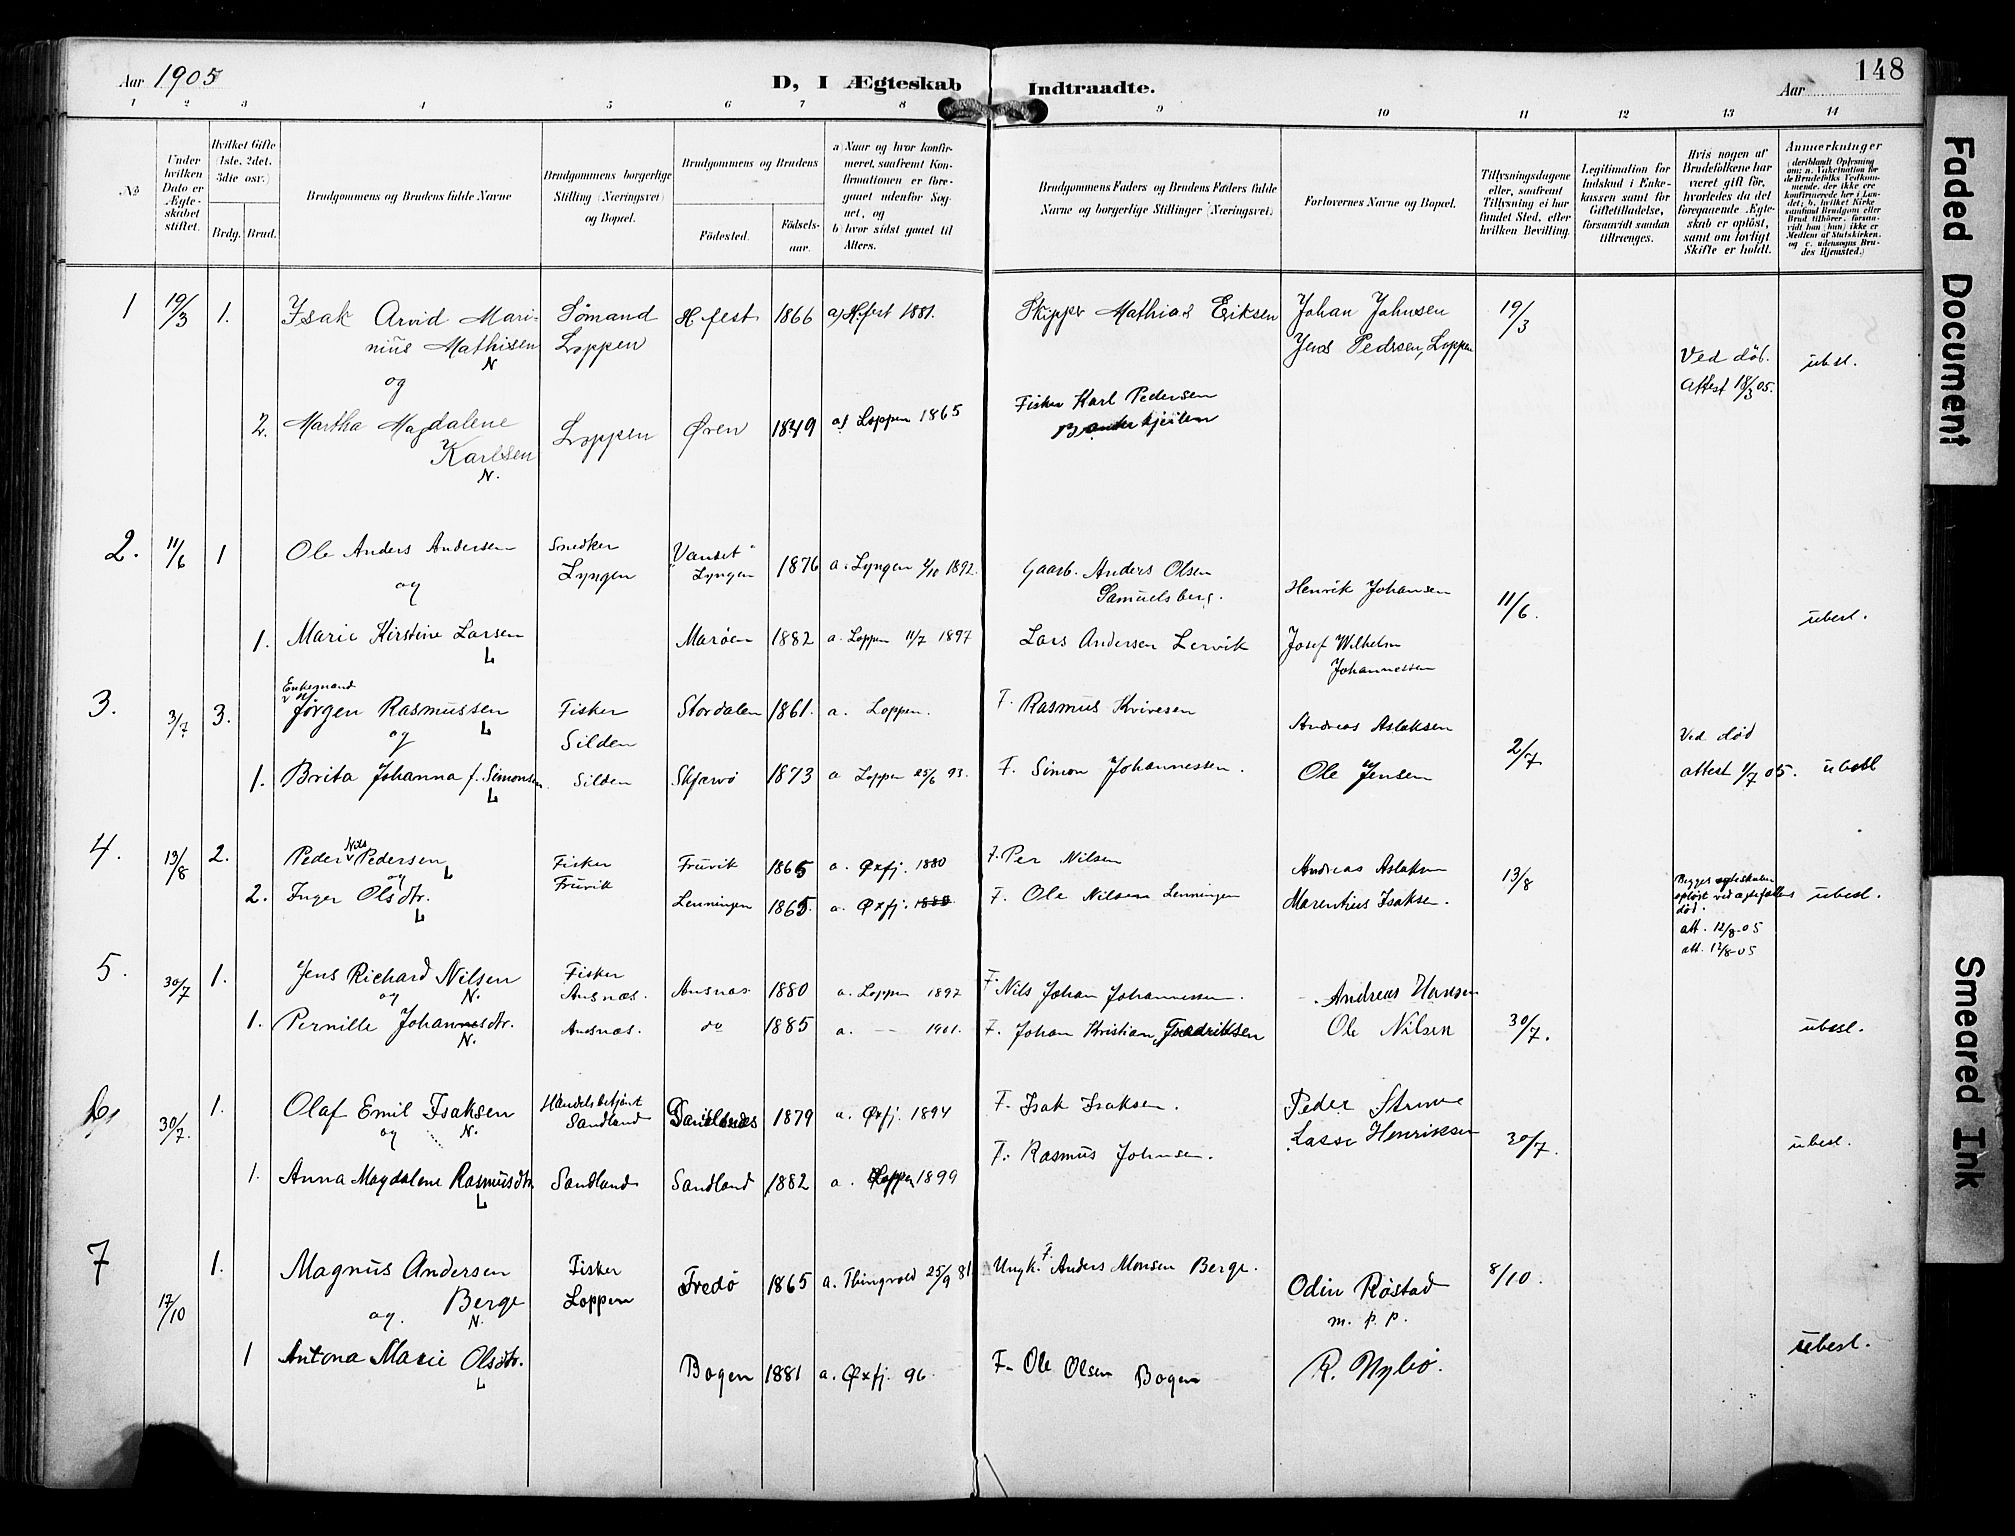 Aar 1905
D, I Ægteskab Indtraadte.
Aar
148
1 2 3 4 5 6 7 8 9 10 11 12 13 14
No
Under hvilken Dato er Ægteskabet stiftet.
Hvilket Gifte 1ste, 2det, 3die osv.)
Brdg. Brud.
Brudgommens og Brudens fulde Navne
Brudgommens borgerlige Stilling (Næringsvei) og Bopæl.
Brudgommens og Brudens
Fødested. Fødselsaar.
a) Naar og hvor konfirmeret, saafremt Konfirmationen er foregaaet udenfor Sognet, og b) hvor sidst gaaet til Alters.
Brudgommens Faders og Brudens Faders fulde Navne og borgerlige Stillinger (Næringsvei)
Forlovernes Navne og Bopæl.
Tillysningsdagene eller, saafremt Tillysning ei har fundet Sted, efter hvilken Bevilling.
Legitimation for Indskud i Enkekassen samt for Giftetilladelse, forsaavidt saadan tiltrænges.
Hvis nogen af Brudefolkene har været gift før, hvorledes da det foregaaende Ægteskab er opløst, samt om lovligt Skifte er holdt.
Anmerkninger
1 19/3 1. Isak Arvid Mari- Sømand H.fest 1866 a) H.fest 1881. Skipper Mathias Eriksen Johan Johnsen 19/3
nius Mathisen Loppen Jens Pedrsen, Loppen
N
og
Ved død. Attest 18/3 05. ubesl.
2. Martha Magdalene Loppen Øren 1849 a) Loppen 1865 Fisker Karl Pedersen
Karlsen
N.
2. 11/6 1 Ole Anders Andersen Snedker 1876 a. Lyngen 1892. Gaarb. Anders Olsen Henrik Johansen 11/6.
og Lyngen Lyngen Samuelsberg.
ubesl.
1. Marie Kirstine Larsen Marøen 1882 a. Loppen 11/7 1897 Lars Andersen Lervik Josef Wilhelm
L Johannessen
3. 3/7 3. Enkemand
Jørgen Rasmussen Fisker Stordalen 1861. a. Loppen. F. Rasmus Andreas Aslaksen 2/7 Ved død
L
og Silden
1. Brita Johanna f. Simonsen Silden Skjærvø 1873 a Loppen 25/6 93. F. Simon Johannessen. Ole Jensen attest 1/7 05. ubesl
L
4. 13/8 2. Peder Nils Pedersen Fisker Fruvik 1865 a. Øxfj. 1880 F. Per Nilsen Andreas Aslaksen 13/8
L
og Fruvik
2. Inger Olsdtr. Lenningen 1865. a. Øxfj. 1880 F. Ole Nilsen Lenningen Marentius Isaksen. ubesl.
L
død.
att. 12/8-05
att. 12/8-05
5. 30/7 1. Jens Richard Nilsen Fisker Ansnæs 1880 a. Loppen 1897 F. Nils Johan Johannessen. Andreas Hansen
og N. Ansnæs.
1. Pernille Johannesdtr. Ansnæs. do 1885 a. — 1901. F. Johan Kristian Fredriksen Ole Nilsen 30/7. ubesl.
N.
6. 30/7. 1. Olaf Emil Isaksen Handelsbetjent 1879 a. Øxfj. 1894 F. Isak Isaksen. Peder
og N. Sandland Lasse Henriksen 30/7. ubesl.
1. Anna Magdalene Rasmusdtr Sandland Sandland 1882 a. Loppen 1899 F. Rasmus Johnsen.
L
7 17/10 1. Magnus Andersen Fisker Fredø 1865 a. Thingvold 25/9 81 Ungk. F. Anders Monsen Berge. Odin Røstad 8/10.
og Berge Loppen m. p. p.
N.
1 Antona Marie Olsdtr. Bogen 1881 a. Øxfj. 96. F. Ole Olsen Bogen R. Nybø. ubesl.
L
Faded Document
Smeared Ink